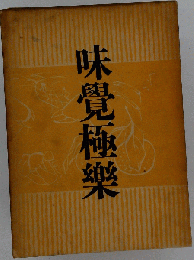 味覺極樂